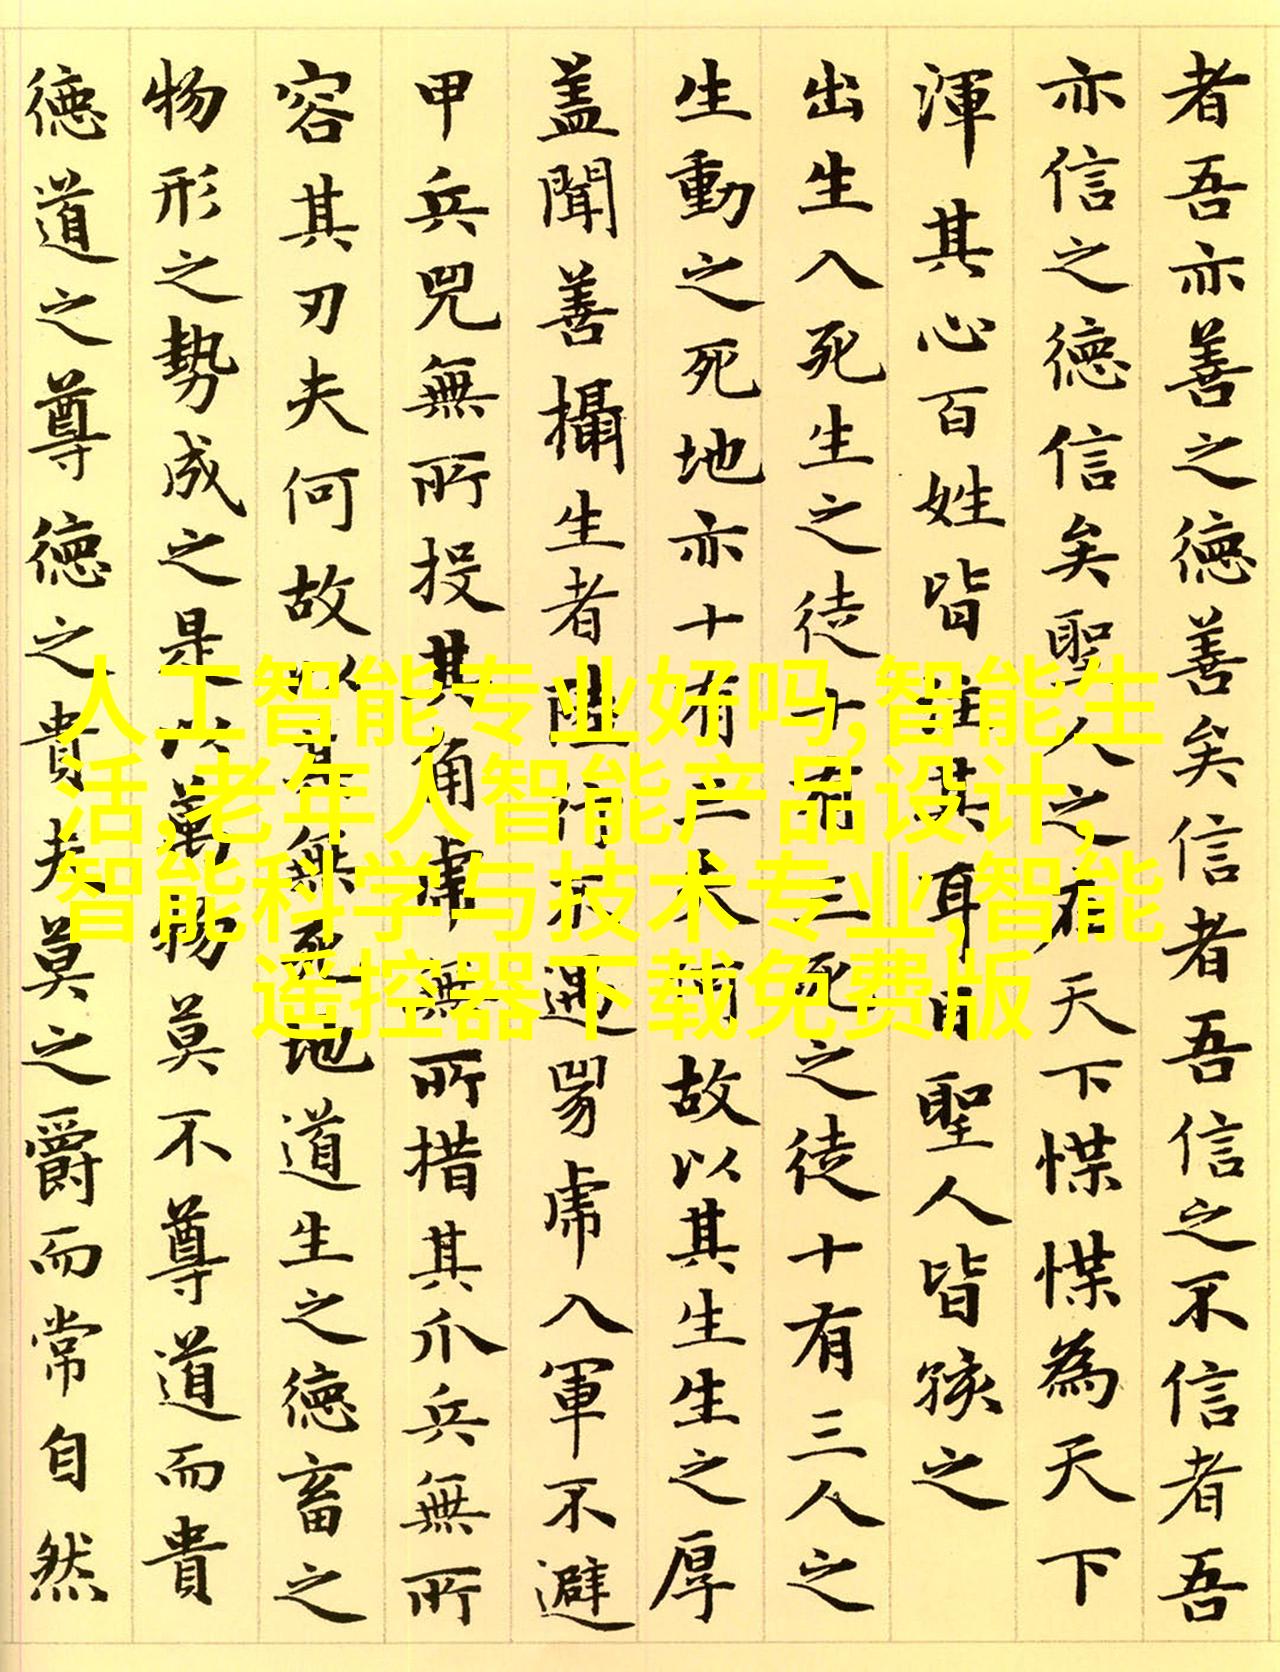 者吾亦善之德善矣信者吾信之不信者吾
亦信之德信矣聖人之在天下惵惵為天下
渾其心百姓皆註其耳目聖人皆孩之
出生入死生之徒十有三死之徒十有三人之
生動之死地亦十有三夫何故以其生生之厚
蓋聞善攝生者陸行不遇兕虎入軍不避
甲兵兕無所投其角虎無所措其爪兵無所
容其刃夫何故以其無死地道生之德畜之
物形之勢成之是以萬物莫不尊道而貴
德道之尊德之貴夫莫之爵而常自然
人工智能专业好吗,智能生
活,老年人智能产品设计,
智能科学与技术专业,智能
遥控器下载免费版